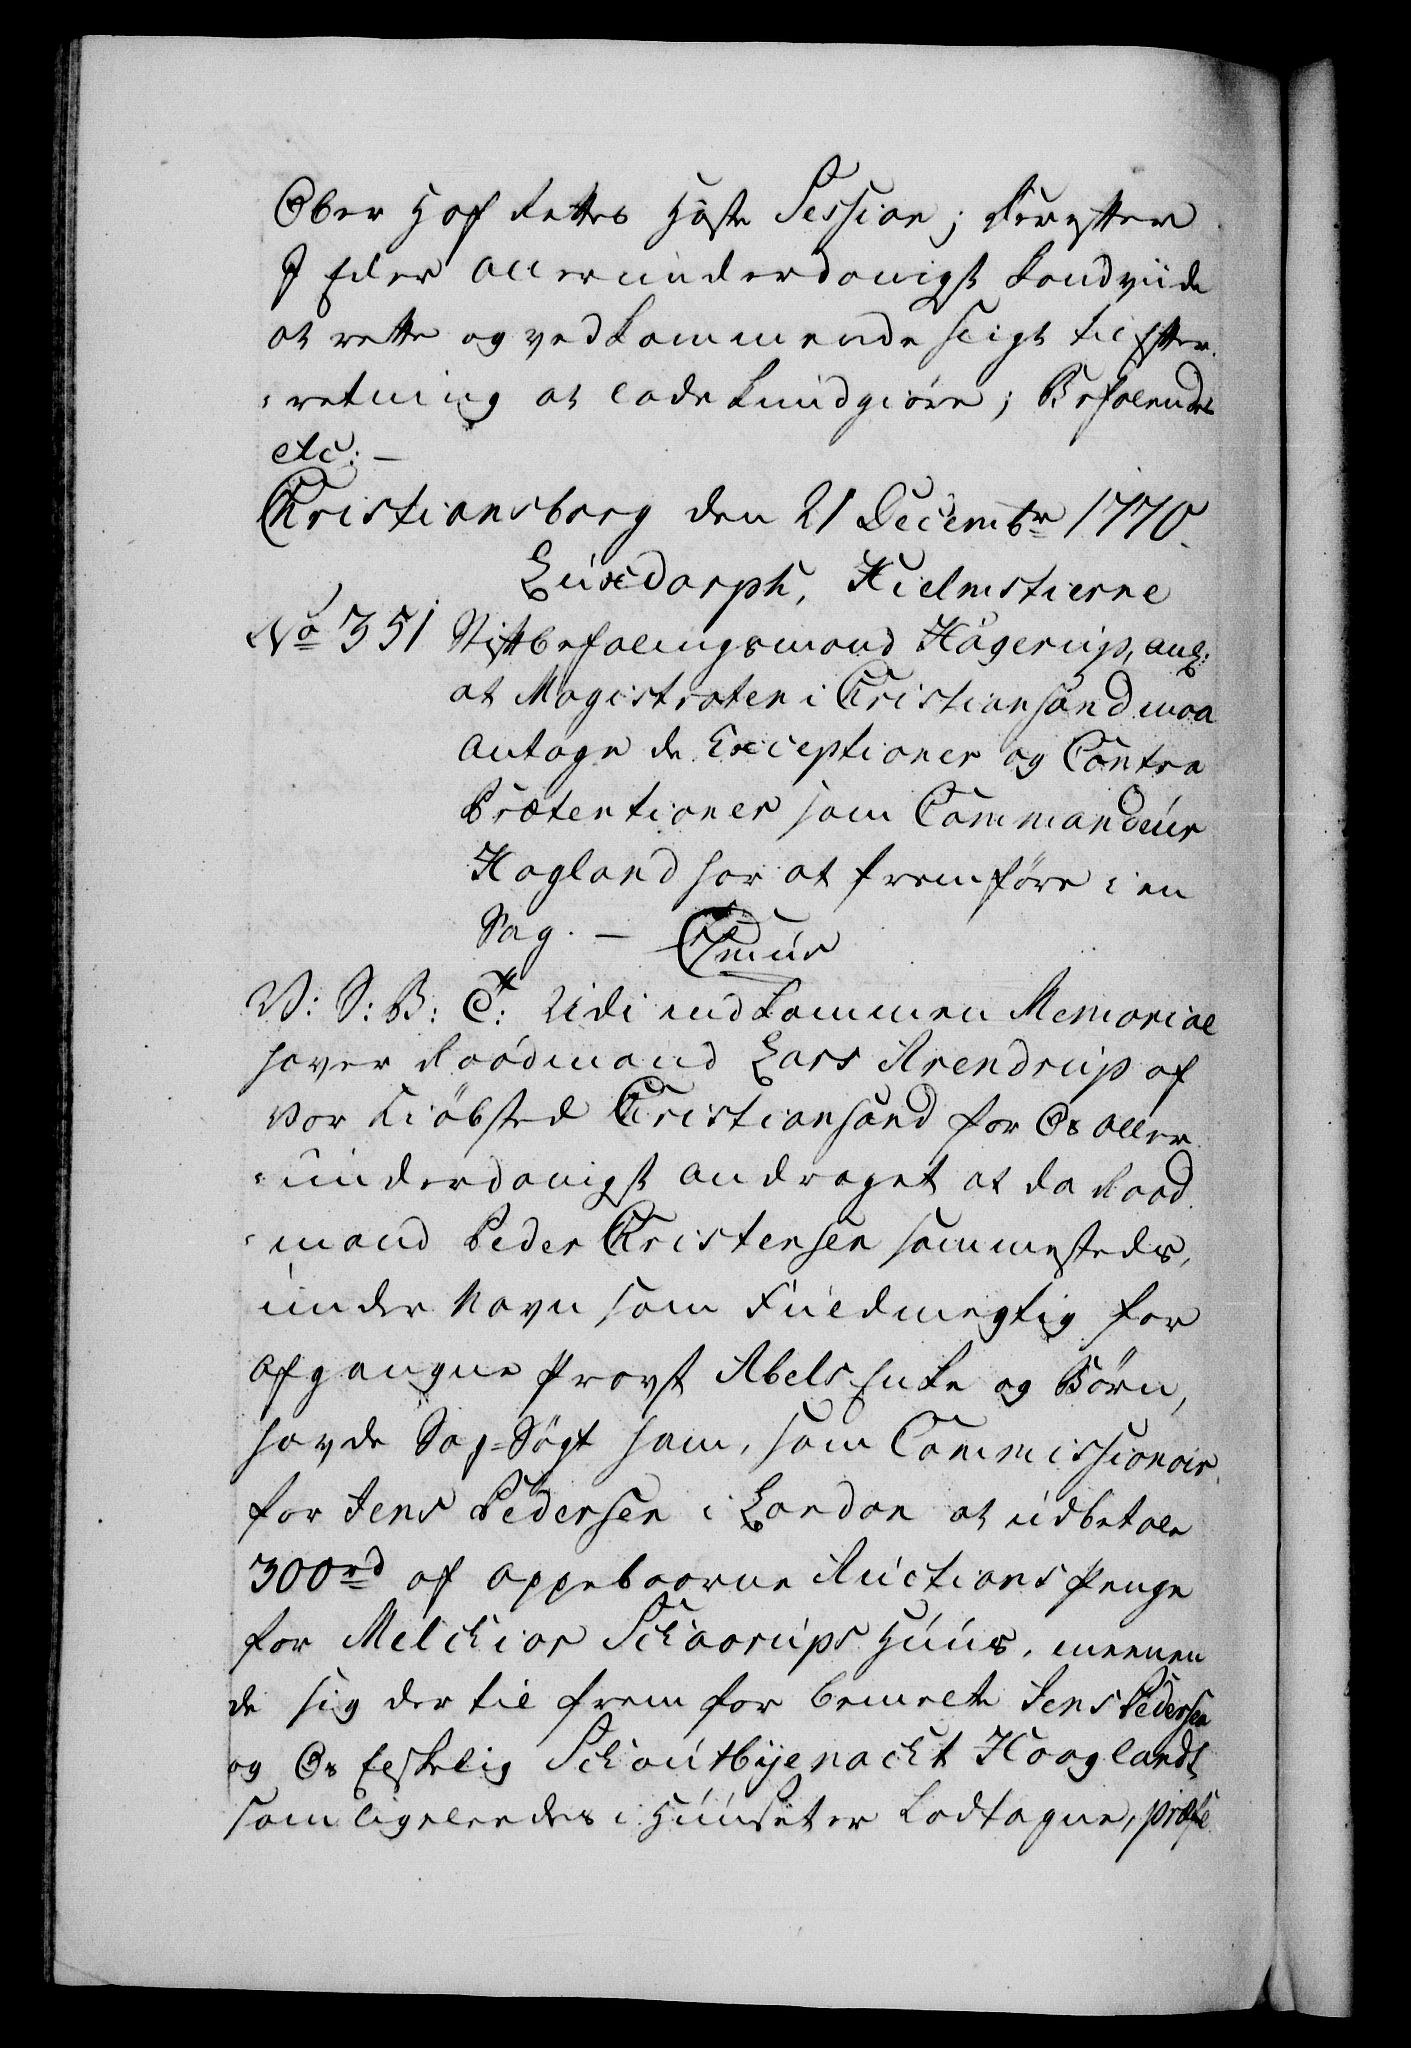 Ober Hof Rettes Høste Session; Derefter
I Eder allerunderdanigst haver
at rette og vedkommende sligt til Efter
-retning at lade kundgiøre; Befalendes
etc: —
Christiansborg den 21 Decembr 1770.
Luxdorph, Hielmstierne
No 351 Stiftbefalingsmand Hagerup, anl:
at Magistraten i Christiansand maa
antage de Exceptioner og Contra
Prætentioner som Commandeur
Hagland har at fremføre i en
Sag. —
V: S: B: Ct: Udi indkommen Memorial
haver Raadmand Lars Arendrup af
vor Kiöbsted Christiansand for Os aller
-underdanigst andraget at da Raad
-mand Peder Christensen sammesteds,
under Navn som Fuldmegtig for
afgangne Provst Abels Enke og Börn,
havde Sag-Sögt ham, som Commissionair
for Jens Pedersen i London at udbetale
300rd af oppebaarne Auctions Penge
for Melchior Schaarups Huus, meenen
de sig der til frem for bemelte Jens Pedersen
og Os Elskelig Schoutbyenacht Hooglandt
som ligeleedes i Huuset er Lodtagne, præfe